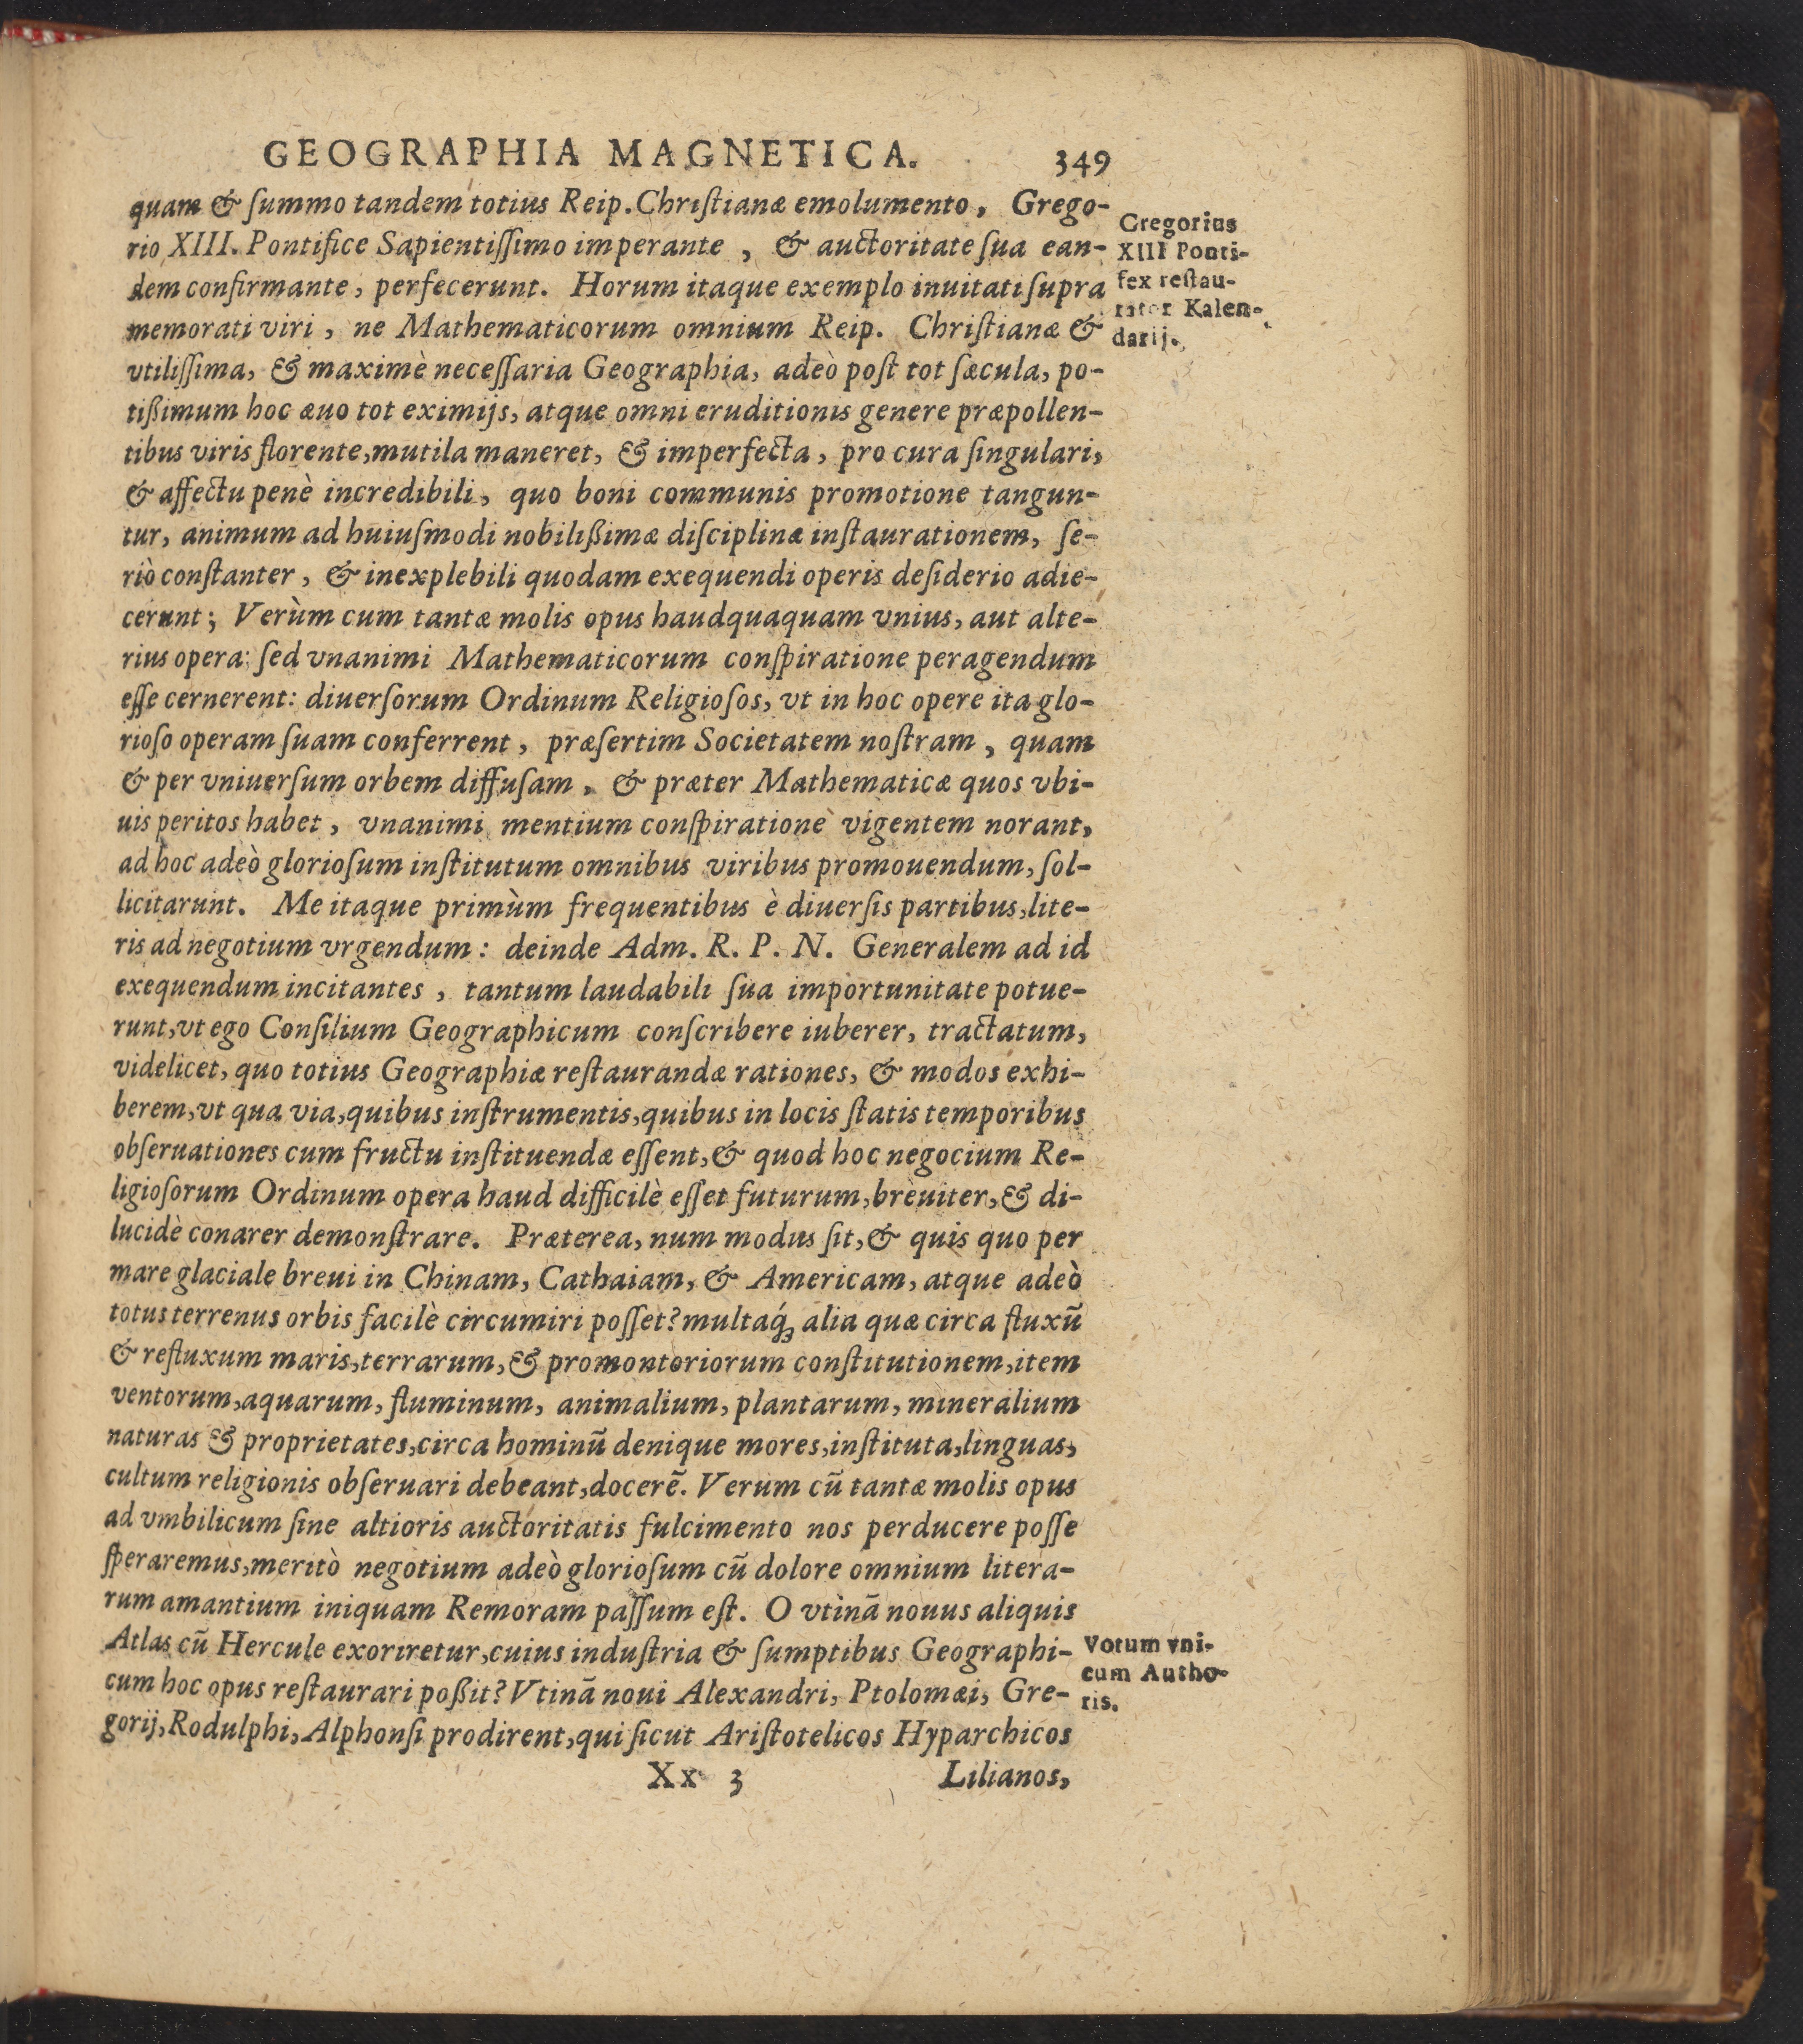 GEOGRAPHIA MAGNETICA. 349
quam & ſummo tandem totius Reip. Chriſtianæ emolumento, Grego-
rio XIII. Pontifice Sapientiſſimo imperante, & auctoritate ſua ean-
dem confirmante, perfecerunt. Horum itaque exemplo inuitati ſupra
memorati viri, ne Mathematicorum omnium Reip. Chriſtianæ &
vtiliſſima, & maximè neceſſaria Geographia, adeò poſt tot ſæcula, po-
tißimum hoc æuo tot eximijs, atque omni eruditionis genere præpollen-
tibus viris florente, mutila maneret, & imperfecta, pro cura ſingulari,
& affectu penè incredibili, quo boni communis promotione tangun-
tur, animum ad huiuſmodi nobilißimæ diſciplinæ inſtaurationem, ſe-
riò conſtanter, & inexplebili quodam exequendi operis deſiderio adie-
cerunt; Verùm cum tantæ molis opus haudquaquam vnius, aut alte-
rius opera: ſed vnanimi Mathematicorum conſpiratione peragendum
eſſe cernerent: diuerſorum Ordinum Religioſos, vt in hoc opere ita glo-
rioſo operam ſuam conferrent, præſertim Societatem noſtram, quam
& per vniuerſum orbem diffuſam, & præter Mathematicæ quos vbi-
uis peritos habet, vnanimi mentium conſpiratione vigentem norant,
ad hoc adeò glorioſum inſtitutum omnibus viribus promouendum, ſol-
licitarunt. Me itaque primùm frequentibus è diuerſis partibus, lite-
ris ad negotium vrgendum: deinde Adm. R. P. N. Generalem ad id
exequendum incitantes, tantum laudabili ſua importunitate potue-
runt, vt ego Conſilium Geographicum conſcribere iuberer, tractatum,
videlicet, quo totius Geographiæ reſtaurandæ rationes, & modos exhi-
berem, vt qua via, quibus inſtrumentis, quibus in locis ſtatis temporibus
obſeruationes cum fructu inſtituendæ eſſent, & quod hoc negocium Re-
ligioſorum Ordinum opera haud difficilè eſſet futurum, breuiter, & di-
lucidè conarer demonſtrare. Præterea, num modus ſit, & quis quo per
mare glaciale breui in Chinam, Cathaiam, & Americam, atque adeò
totus terrenus orbis facilè circumiri poſſet? multaq́ꝫ alia quæ circa fluxũ
& refluxum maris, terrarum, & promontoriorum conſtitutionem, item
ventorum, aquarum, fluminum, animalium, plantarum, mineralium
naturas & proprietates, circa hominũ denique mores, inſtituta, linguas,
cultum religionis obſeruari debeant, docerẽ. Verum cũ tantæ molis opus
ad vmbilicum ſine altioris auctoritatis fulcimento nos perducere poſſe
ſperaremus, meritò negotium adeò glorioſum cũ dolore omnium litera-
rum amantium iniquam Remoram paſſum eſt. O vtinã nouus aliquis
Atlas cũ Hercule exoriretur, cuius induſtria & ſumptibus Geographi-
cum hoc opus reſtaurari poßit? Vtinã noui Alexandri, Ptolomæi, Gre-
gorij, Rodulphi, Alphonſi prodirent, qui ſicut Ariſtotelicos Hyparchicos
Xx 3 Lilianos,
Gregorius
XIII Ponti-
fex reſtau-
rator Kalen-
darij.
Votum vni-
cum Autho-
ris.